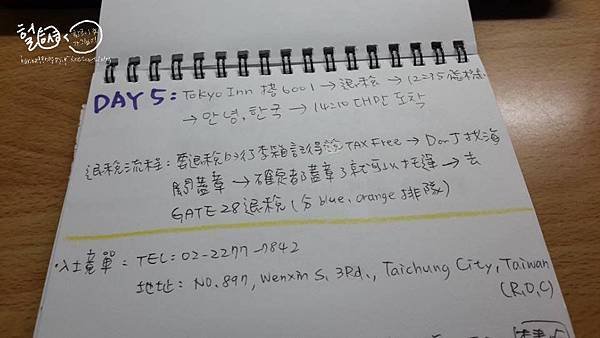 DAY 5: Tokyo Inn 搭 6001 → 退稅 → 12:35
→ 안녕, 한국 → 14210 대만 도착
退稅流程: 要退稅的行李箱記得 TAX Free → Don J 找海
關蓋章 → 確定都蓋章了就可以托運 → 去
GATE 28 退稅 (分 blue, orange 排隊)
·入境單: TEL: 02-2277-7842
地址: NO. 897, Wenxin S. 3Rd., Taichung City, Taiwan
(R.O.C)